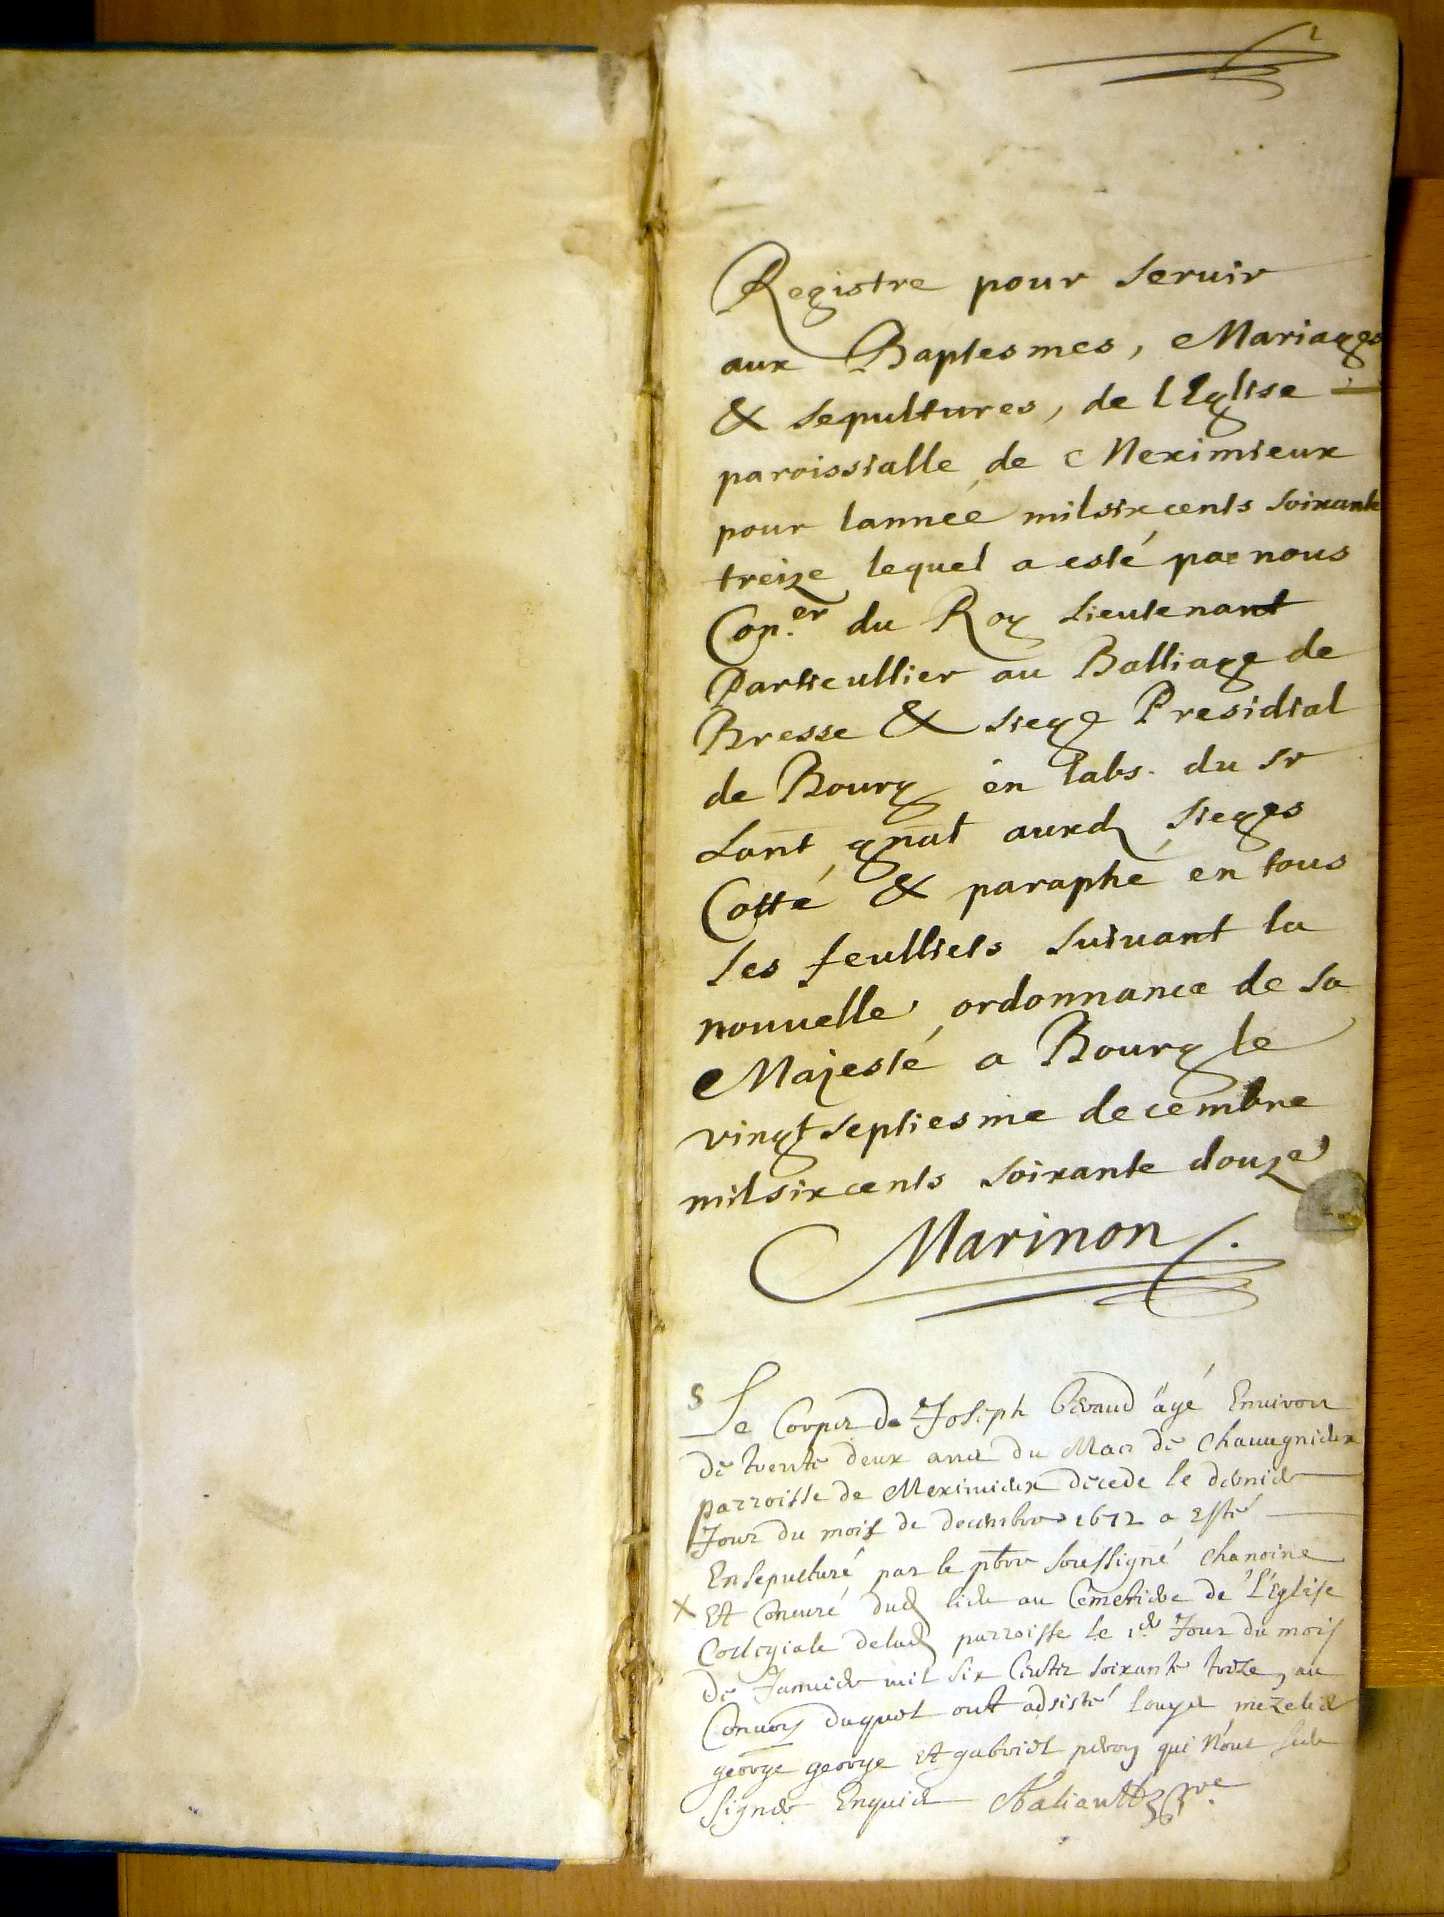 1
Registre pour seruir
aux Baptesmes, Mariages
& sepultures, de l'Eglise
paroissialle de Meximieux
pour lannée milsixcents soixante
treize lequel a esté par nous
Con.er du Roy Lieutenant
Particullier au Balliage de
Bresse & siege Presidial
de Bourg en labs. du sr
Lant gnal auxd sieges
Cotté & paraphé en tous
ses feulliets suiuant la
nouuelle ordonnance de sa
Majesté a Bourg le
vingt septiesme decembre
milsixcents soixante douze
Marinon
S
Le Corps de Joseph age Enuiron
de trente deux ans du Mas de
parroisse de Meximieux decede le dernier
Jour du mois de decembre 1672 a Esté
Ensepulturé par le pbre soussigné chanoine
X Et Concuré dud lieu au Cemetiere de L'Eglise
Collegiale delad parroisse le 1er Jour du mois
de Januier mil six Cents soixante treze, au
Conuoy duquel ont adsisté Louys
george george Et gabriel qui n'ont sceu
signer Enquis